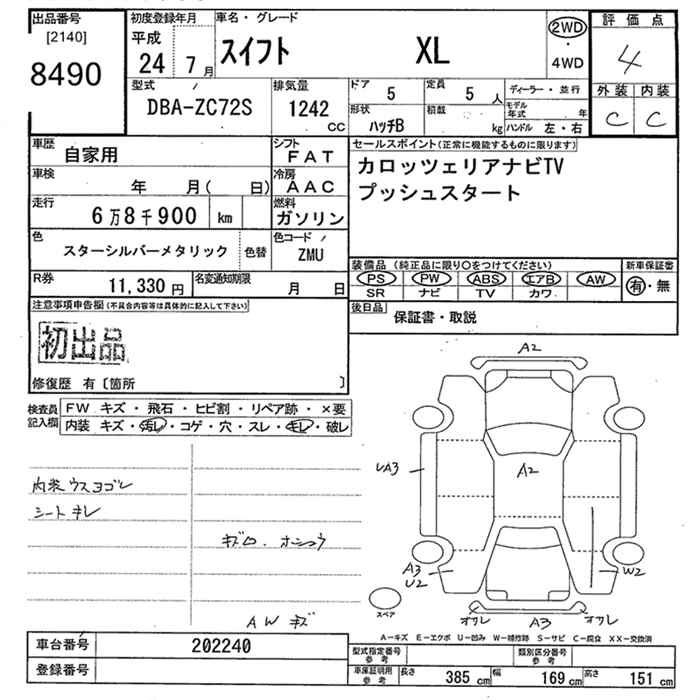 出品番号
[2140]
8490
初度登録年月
平成
24 7月
車名・グレード
スイフト XL
2WD
・
4WD
評価点
4
外装 内装
C C
型式
DBA-ZC72S
排気量
1242
CC
ドア
5
定員
5人
形状
ハッチB
積載
kg
ディーラー・並行
モデル年式 年
ハンドル 左・右
車歴
自家用
シフト
FAT
車検
年 月( 日)
冷房
AAC
走行
6万8千900 km
燃料
ガソリン
色
スターシルバーメタリック
色替
色コード
ZMU
R券
11,330円
名変通知期限
月 日
セールスポイント(正常に機能するものに限ります)
カロッツェリアナビTV
プッシュスタート
装備品(純正品に限り○をつけてください)
PS PW ABS エアB AW
SR ナビ TV カワ
新車保証書
有・無
後日品
保証書・取説
注意事項申告欄(不具合内容等は具体的に記入して下さい)
初出品
修復歴 有〔箇所 〕
検査員記入欄
FW キズ・飛石・ヒビ割・リペア跡・×要
内装 キズ・汚レ・コゲ・穴・スレ・キレ・破レ
内装ウスヨゴレ
シートキレ
AWキズ
A2
UA3
A2
A3
U2
W2
スペア
オサレ A3 オサレ
A−キズ E−エクボ U−凹み W−補修跡 S−サビ C−腐食 XX−交換済
車台番号
202240
登録番号
型式指定番号
参考
類別区分番号
参考
車庫証明用
参考
長さ 385 cm 幅 169 cm 高さ 151 cm